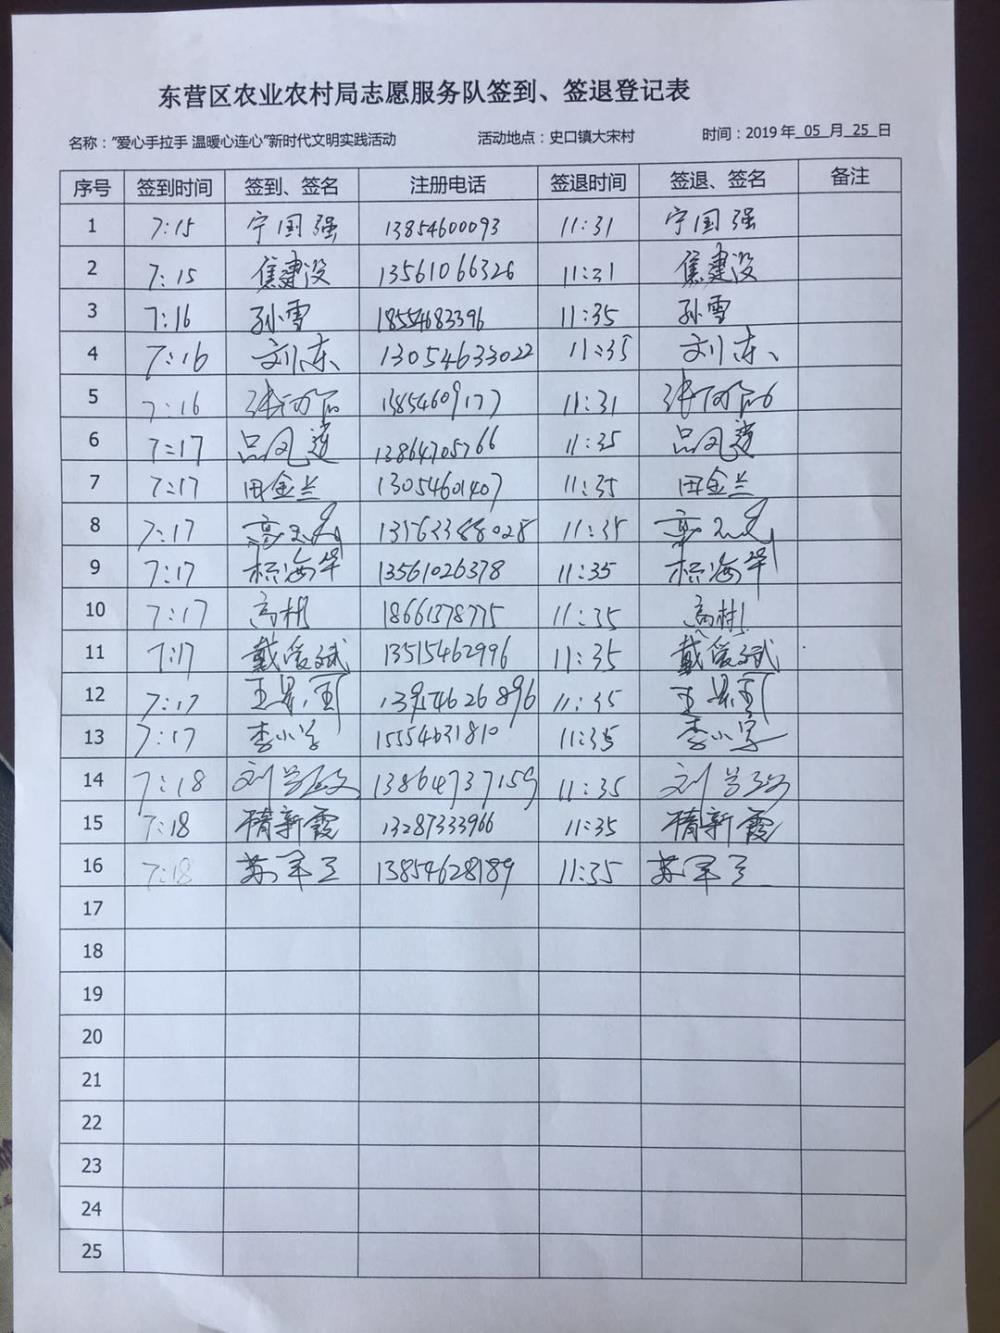 东营区农业农村局志愿服务队签到、签退登记表
名称："爱心手拉手 温暖心连心"新时代文明实践活动 活动地点：史口镇大宋村 时间：2019 年 05 月 25 日
序号 签到时间 签到、签名 注册电话 签退时间 签退、签名 备注
1 7:15 宁国强 13854600093 11:31 宁国强
2 7:15 焦建设 13561066326 11:31 焦建设
3 7:16 孙雪 18554683396 11:35 孙雪
4 7:16 刘东 13054633022 11:35 刘东
5 7:16 13854609177 11:31
6 7:17 吕风莲 13864705766 11:35 吕风莲
7 7:17 田金兰 13054601407 11:35 田金兰
8 7:17 11:35
9 7:17 杨海华 13561026378 11:35 杨海华
10 7:17 高彬 18661378775 11:35 高彬
11 7:17 戴俊斌 13515462996 11:35 戴俊斌
12 7:17 11:35
13 7:17 李小军 15554631810 11:35 李小军
14 7:18 刘 13864737159 11:35 刘
15 7:18 隋新霞 13287333966 11:35 隋新霞
16 7:18 苏军 13854628189 11:35 苏军
17
18
19
20
21
22
23
24
25